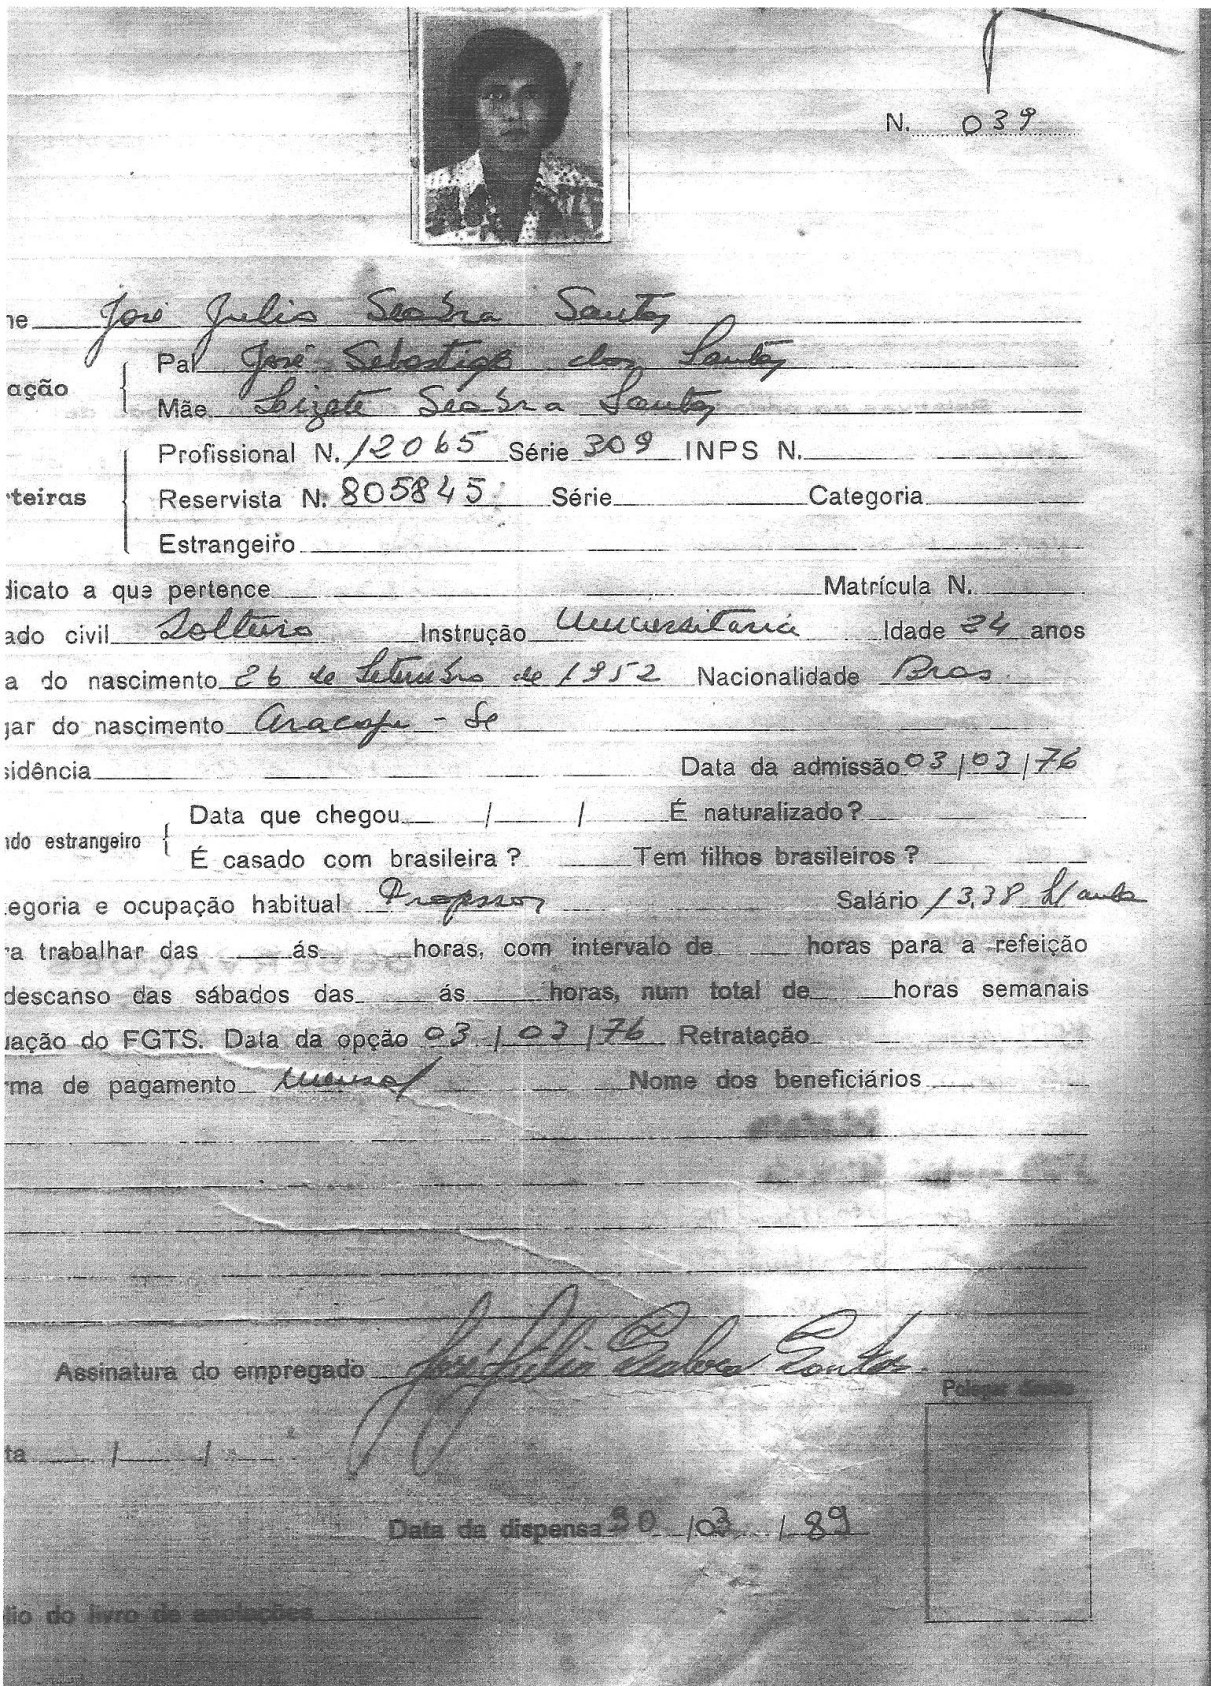 N. 039
ne José Julio Seabra Santos
ação
Pai José Sebastião dos Santos
Mãe Lizete Seabra Santos
Profissional N. 12065 Série 309 INPS N.
rteiras
Reservista N. 805845 Série Categoria
Estrangeiro
dicato a que pertence Matrícula N.
ado civil Solteiro Instrução Universitaria Idade 24 anos
a do nascimento 26 de Setembro de 1952 Nacionalidade Bras.
jar do nascimento Aracaju - Se
sidência Data da admissão 03/03/76
Data que chegou / / É naturalizado?
ndo estrangeiro
É casado com brasileira? Tem filhos brasileiros?
tegoria e ocupação habitual Professor Salário 13,38 h/aula
ra trabalhar das ás horas, com intervalo de horas para a refeição
descanso das sábados das ás horas, num total de horas semanais
uação do FGTS. Data da opção 03/03/76 Retratação
rma de pagamento mensal Nome dos beneficiários
Assinatura do empregado José Júlio Seabra Santos
Polegar direito
ta / /
Data da dispensa 30/03/89
lio do livro de anotações